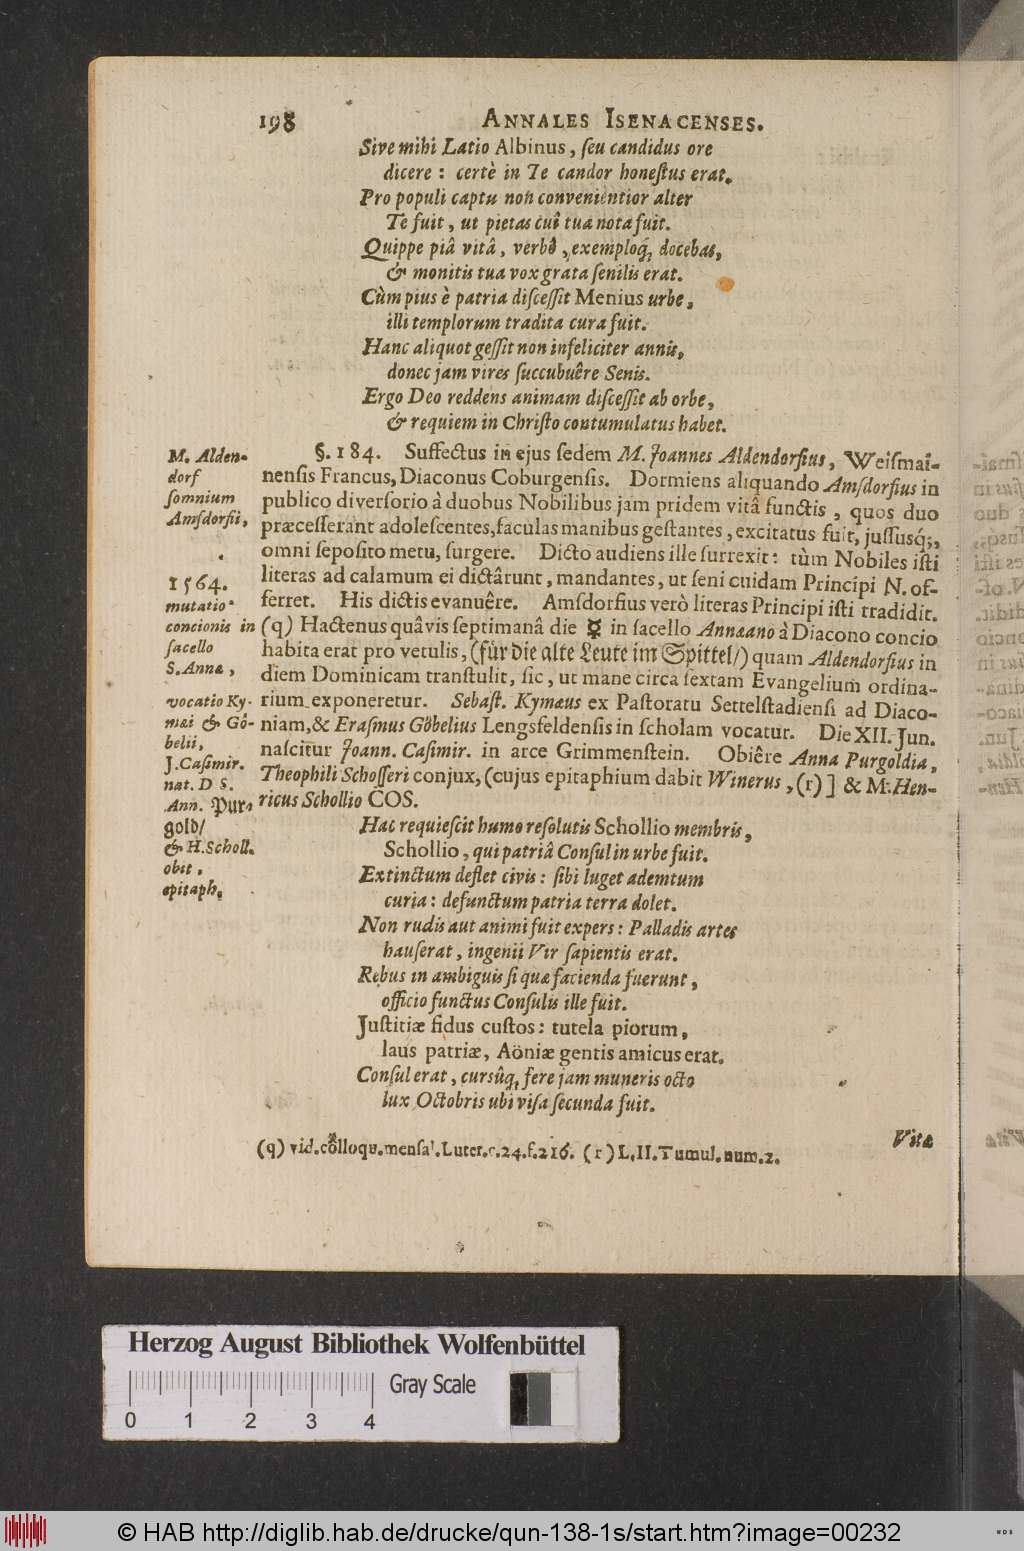 198 ANNALES ISENACENSES.
Sive mihi Latio Albinus, ſeu candidus ore
dicere : certè in Te candor honeſtus erat.
Pro populi captu non convenientior alter
Te fuit, ut pietas cui tua nota fuit.
Quippe piâ vitâ, verbô, exemploq́; docebas,
& monitis tua vox grata ſenilis erat.
Cùm pius è patria diſceſſit Menius urbe,
illi templorum tradita cura fuit.
Hanc aliquot geſſit non infeliciter annis,
donec jam vires ſuccubuêre Senis.
Ergo Deo reddens animam diſceſſit ab orbe,
& requiem in Chriſto contumulatus habet.
M. Alden-
dorf
ſomnium
Amſdorfii,
1564.
mutatio
concionis in
ſacello
S. Annæ,
vocatio Ky-
mæi & Gö-
belii,
J. Caſimir.
nat. D S.
Ann. Pur-
gold/
& H. Scholl.
obit,
epitaph.
§. 184. Suffectus in ejus ſedem M. Joannes Aldendorfius, Weiſmai-
nenſis Francus, Diaconus Coburgenſis. Dormiens aliquando Amſdorfius in
publico diverſorio à duobus Nobilibus jam pridem vitâ functis, quos duo
præceſſerant adoleſcentes, faculas manibus geſtantes, excitatus fuit, juſſusq;,
omni ſepoſito metu, ſurgere. Dicto audiens ille ſurrexit: tùm Nobiles iſti
literas ad calamum ei dictârunt, mandantes, ut ſeni cuidam Principi N. of-
ferret. His dictis evanuêre. Amſdorfius verò literas Principi iſti tradidit.
(q) Hactenus quâvis ſeptimanâ die ☿ in ſacello Annæano à Diacono concio
habita erat pro vetulis, (für die alte Leute im Spittel/) quam Aldendorfius in
diem Dominicam tranſtulit, ſic, ut mane circa ſextam Evangelium ordina-
rium exponeretur. Sebaſt. Kymæus ex Paſtoratu Settelſtadienſi ad Diaco-
niam, & Eraſmus Göbelius Lengsfeldenſis in ſcholam vocatur. Die XII. Jun.
naſcitur Joann. Caſimir. in arce Grimmenſtein. Obiêre Anna Purgoldia,
Theophili Schoſſeri conjux, (cujus epitaphium dabit Winerus, (r)] & M. Hen-
ricus Schollio COS.
Hac requieſcit humo reſolutis Schollio membris,
Schollio, qui patriâ Conſul in urbe fuit.
Extinctum deflet civis: ſibi luget ademtum
curia: defunctum patria terra dolet.
Non rudis aut animi fuit expers: Palladis artes
hauſerat, ingenii Vir ſapientis erat.
Rebus in ambiguis ſi qua facienda fuerunt,
officio functus Conſulis ille fuit.
Juſtitiæ fidus cuſtos: tutela piorum,
laus patriæ, Aöniæ gentis amicus erat.
Conſul erat, cursûq́; fere jam muneris octo
lux Octobris ubi viſa ſecunda fuit.
Vitæ
(q) vid. colloqu. menſal. Luter. c. 24. f. 216. (r) L. II. Tumul. num. 2.
Herzog August Bibliothek Wolfenbüttel
Gray Scale
0 1 2 3 4
© HAB http://diglib.hab.de/drucke/qun-138-1s/start.htm?image=00232